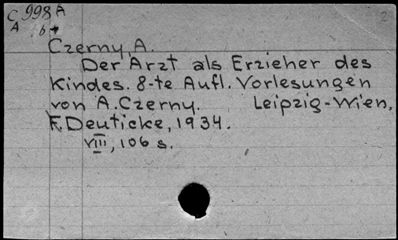 C 998 A
A 6+
Czerny, A.
Der Arzt als Erzieher des
Kindes. 8-te Aufl. Vorlesungen
von A. Czerny. Leipzig-Wien,
F. Deuticke, 1934.
VIII, 106 s.
2